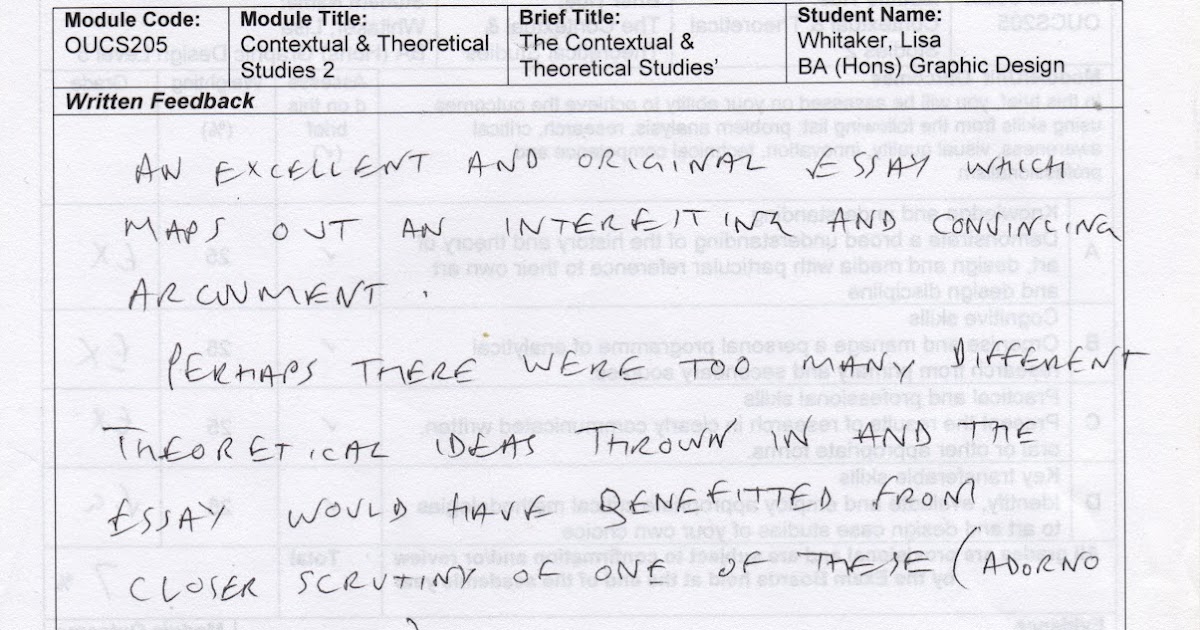 Module Code:
OUCS205
Module Title:
Contextual & Theoretical
Studies 2
Brief Title:
The Contextual &
Theoretical Studies'
Student Name:
Whitaker, Lisa
BA (Hons) Graphic Design
Written Feedback
AN EXCELLENT AND ORIGINAL ESSAY WHICH
MAPS OUT AN INTERESTING AND CONVINCING
ARGUMENT.
PERHAPS THERE WERE TOO MANY DIFFERENT
THEORETICAL IDEAS THROWN IN AND THE
ESSAY WOULD HAVE BENEFITTED FROM
CLOSER SCRUTINY OF ONE OF THESE (ADORNO